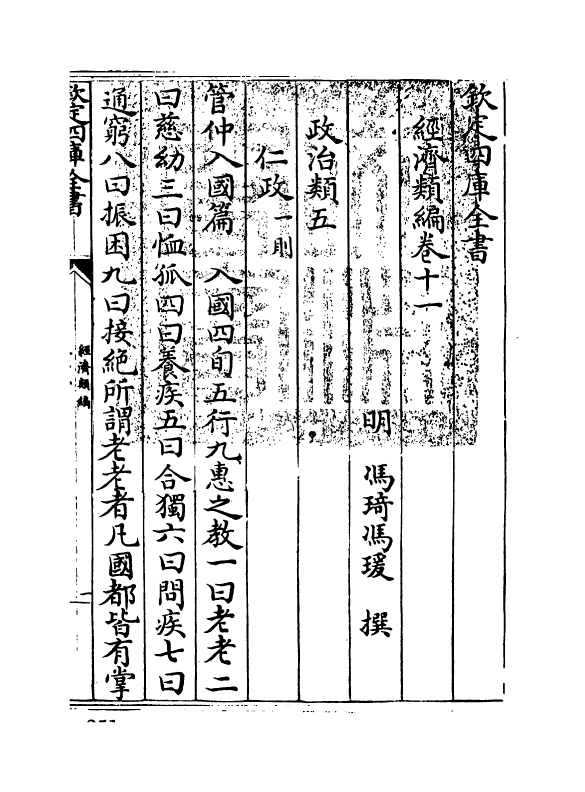 欽定四庫全書
經濟類編卷十一
明 馮琦馮瑗 撰
政治類五
仁政一則
管仲入國篇 入國四旬五行九惠之教一曰老老二
曰慈幼三曰恤孤四曰養疾五曰合獨六曰問疾七曰
通窮八曰振困九曰接絕所謂老老者凡國都皆有掌
欽定四庫全書
經濟類編
一